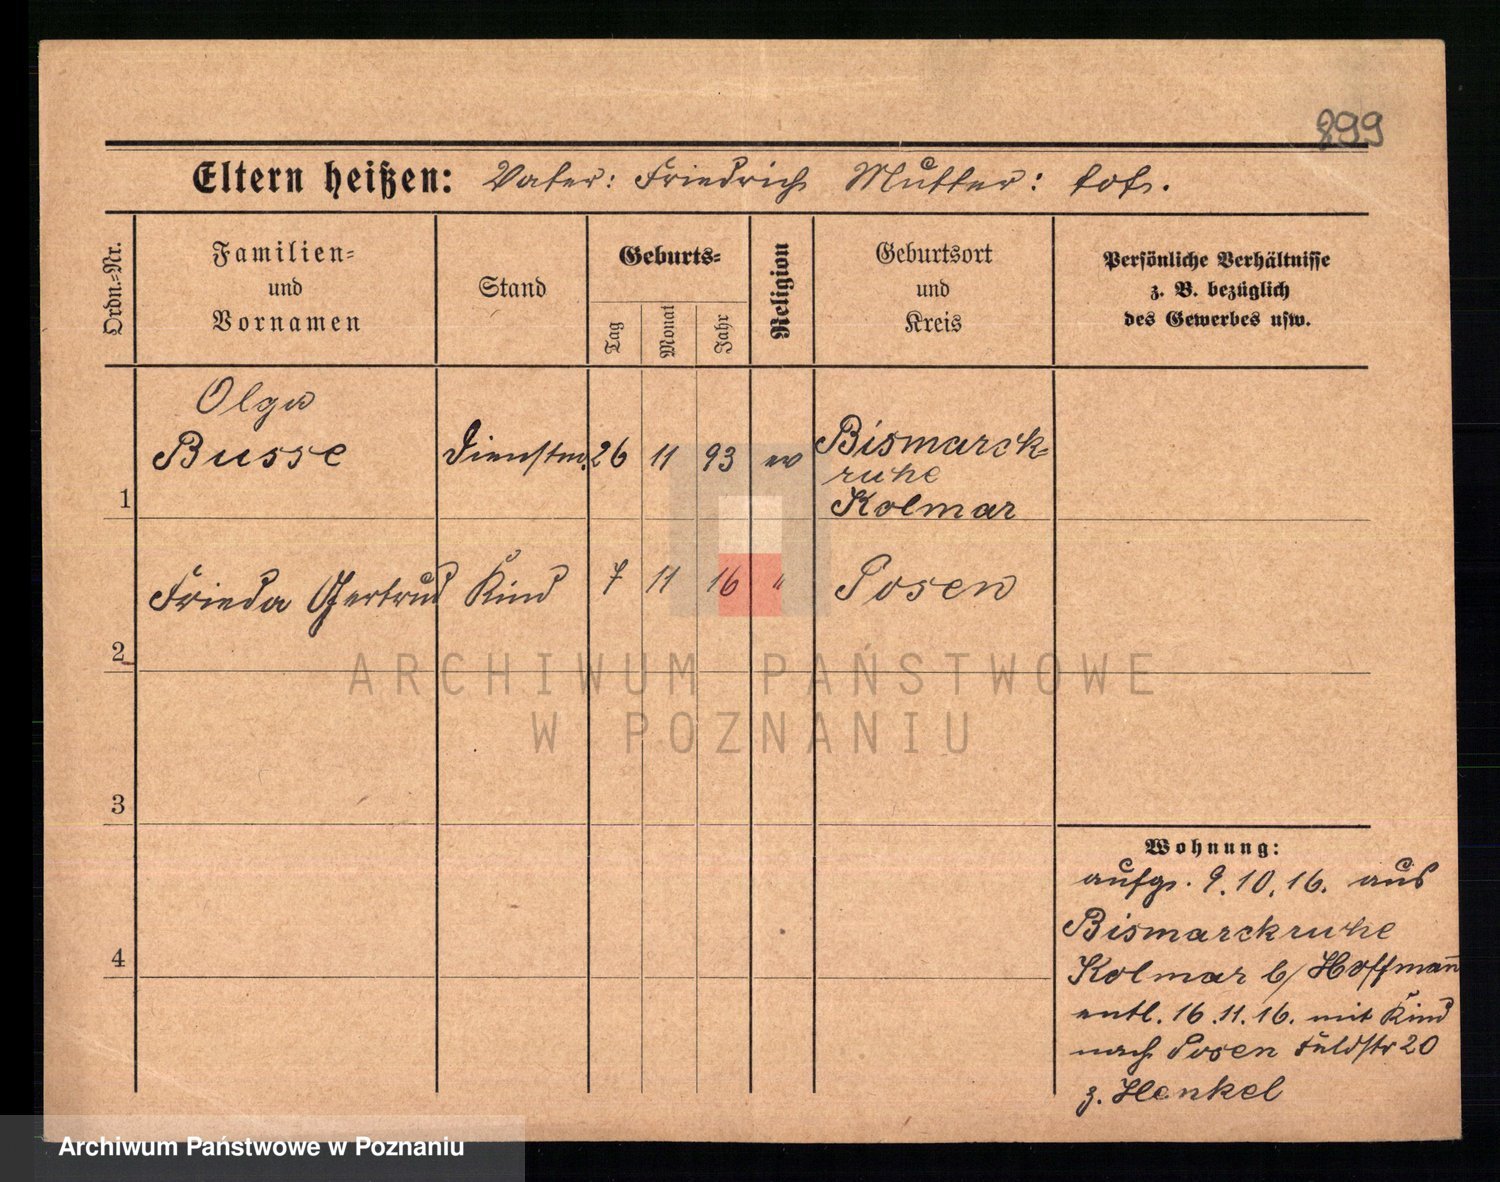 899
Eltern heißen: Vater: Friedrich Mutter: tot.
Ordn.-Nr.
Familien-
und
Vornamen
Stand
Geburts-
Tag
Monat
Jahr
Religion
Geburtsort
und
Kreis
Persönliche Verhältnisse
z. B. bezüglich
des Gewerbes usw.
1
Olga
Busse
Dienstm.
26
11
93
ev
Bismarck-
ruhe
Kolmar
2
Frieda Gertrud
Kind
7
11
16
"
Posen
ARCHIWUM PAŃSTWOWE
W POZNANIU
3
4
Wohnung:
aufg. 9.10.16. aus
Bismarckruhe
Kolmar b/ Hoffmann
entl. 16.11.16. mit Kind
nach Posen Feldstr 20
z. Henkel
Archiwum Państwowe w Poznaniu